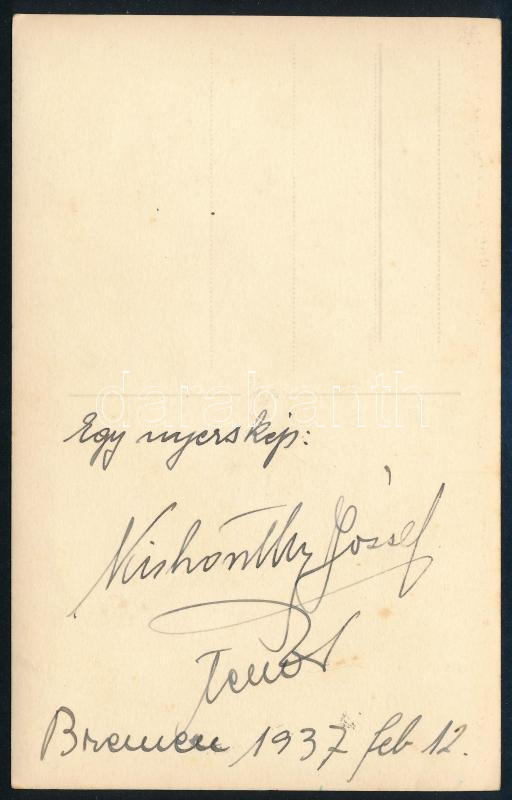 darabanth
Egy nyerskép:
Kishonthy József
Tenor
Bremen 1937 feb 12.